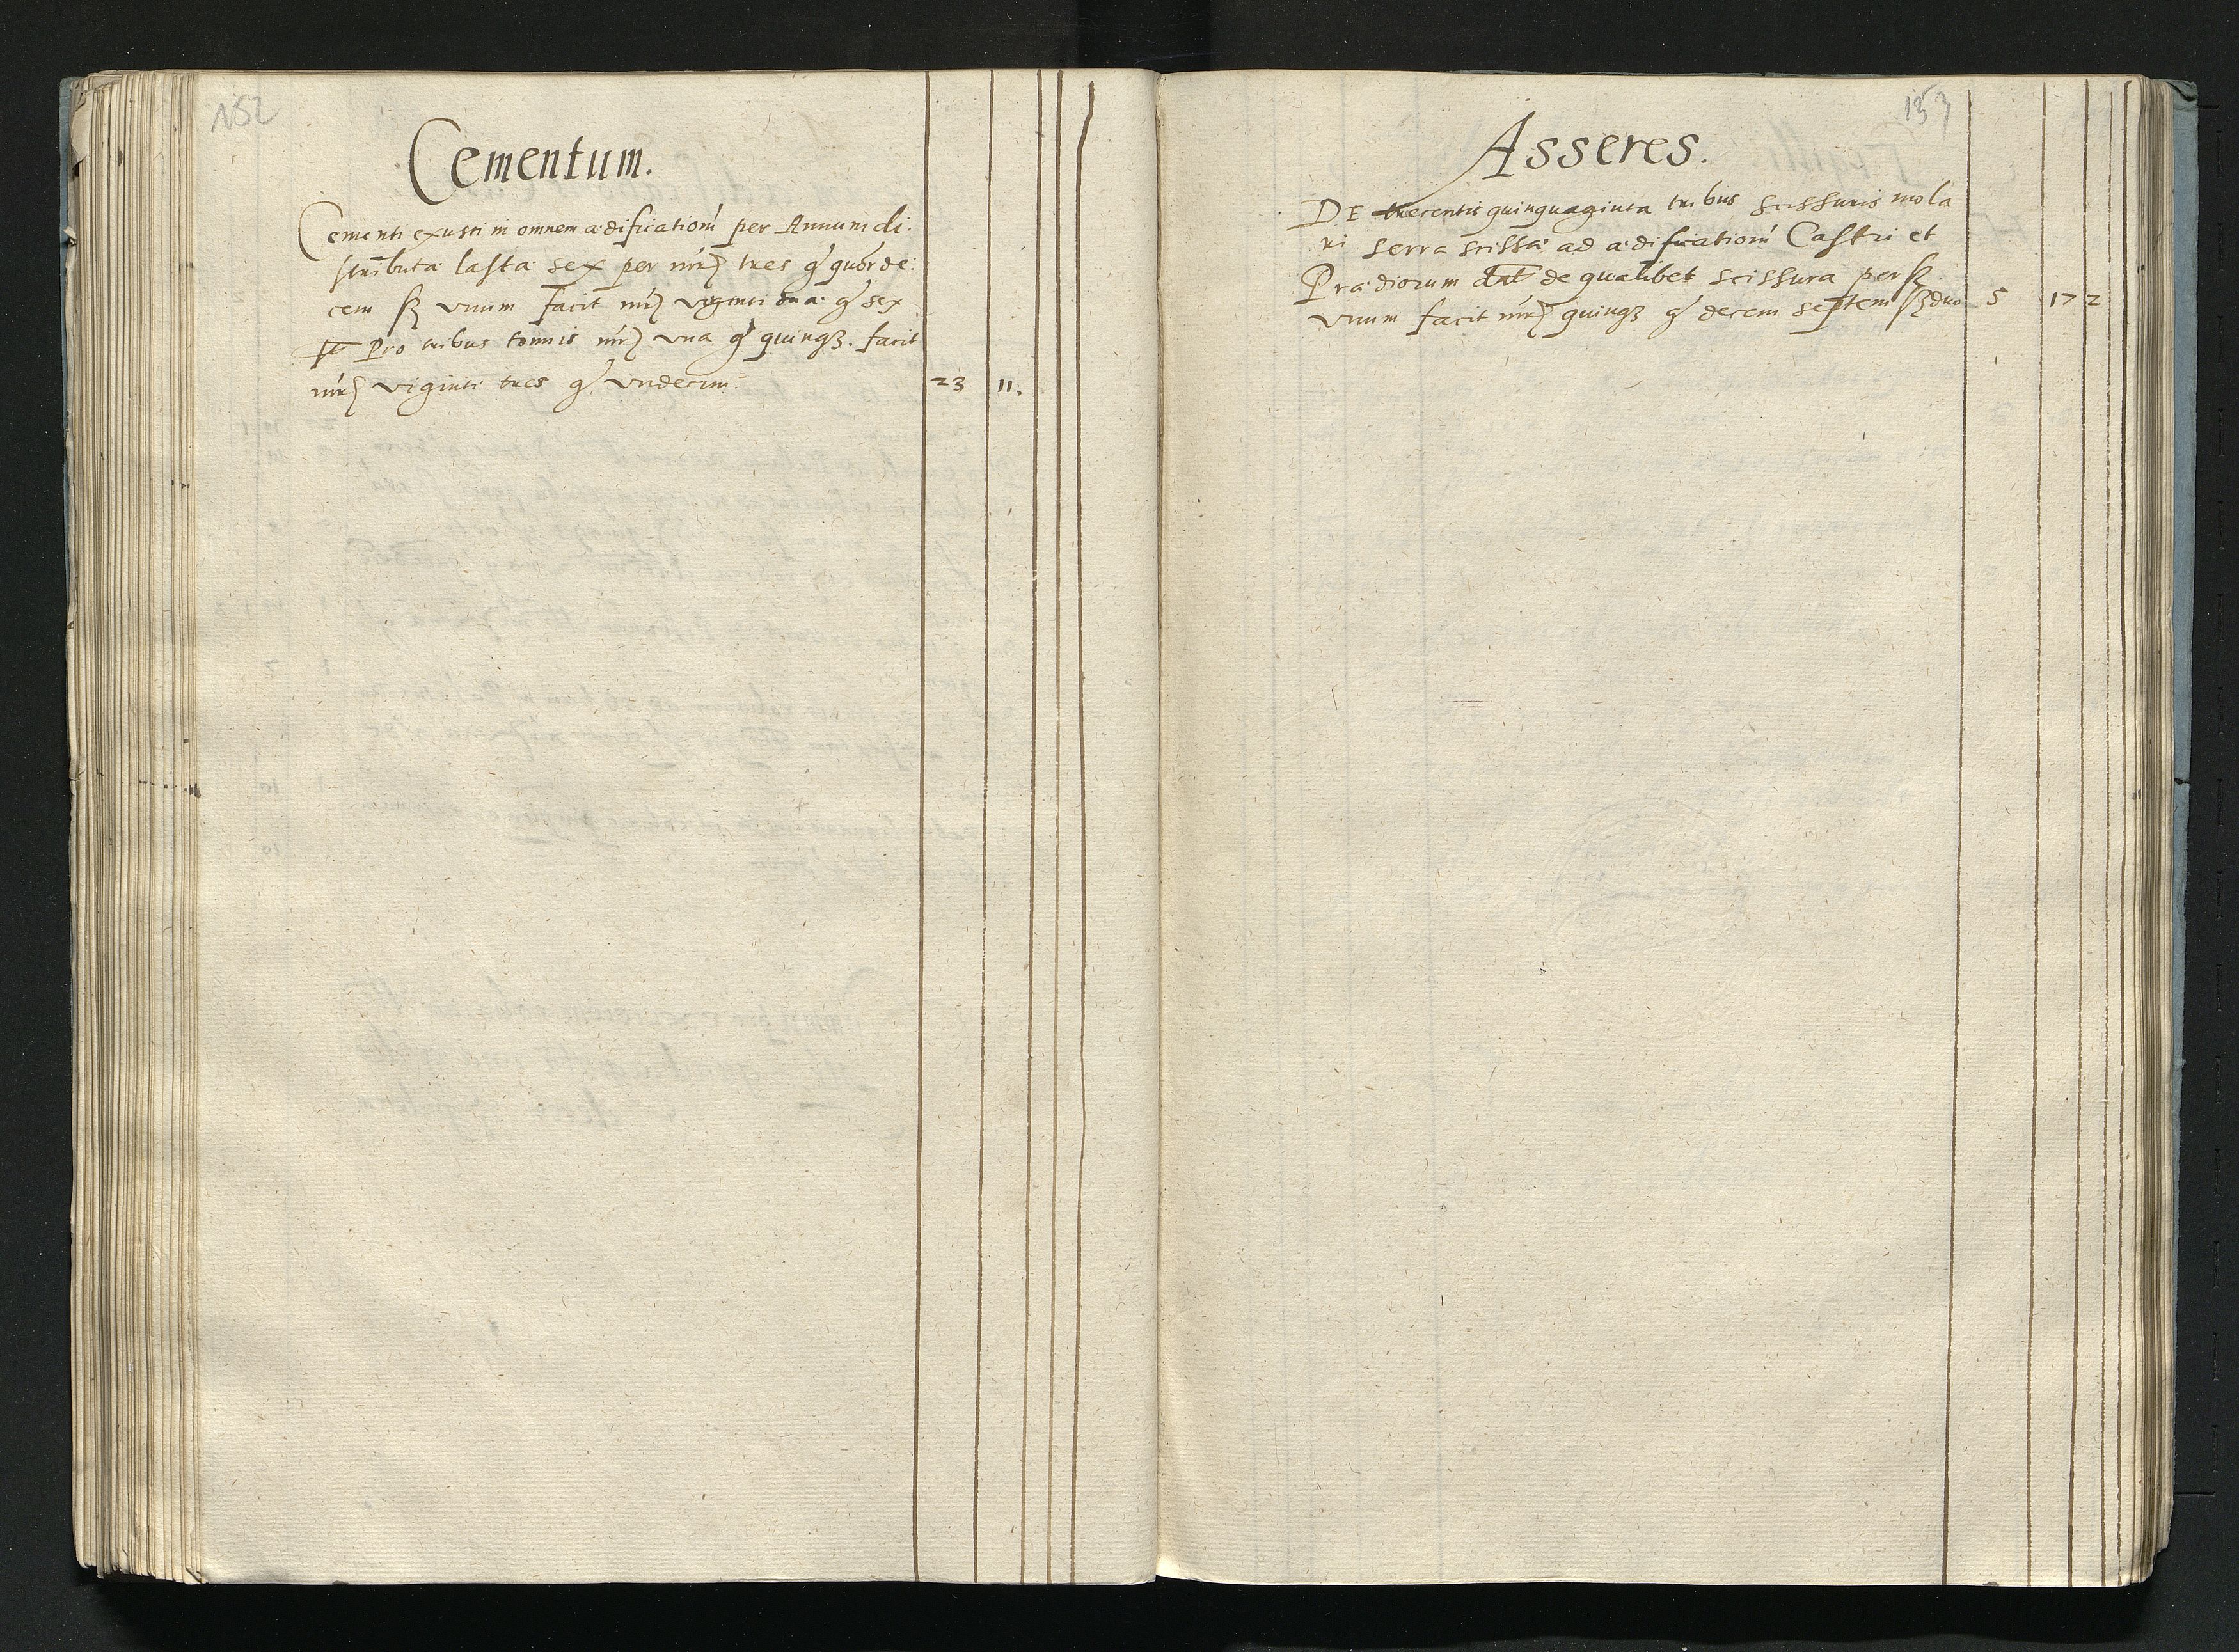 152
Cementum.
Cementi exusti in omnem ædificationẽ per Annum di:
stributa lasta sex per mrꝭ tres gͬ quorde:
cem ſꝫ vnum facit mrꝭ viginti dua: gͬ sex
It Pro tribus tonnis mrꝭ vna gͬ quinqꝫ. facit
mrꝭ viginti tres gͬ vndecim: 23 11.
153
Asseres.
DE trecentis quinquaginta tribus scissuris mola
ri serra scissæ ad ædificationẽ Castri et
Prædiorum de qualibet scissura per ſꝫ
vnum facit mrꝭ quinqꝫ gͬ decem septem ſꝫ duo 5 17 2